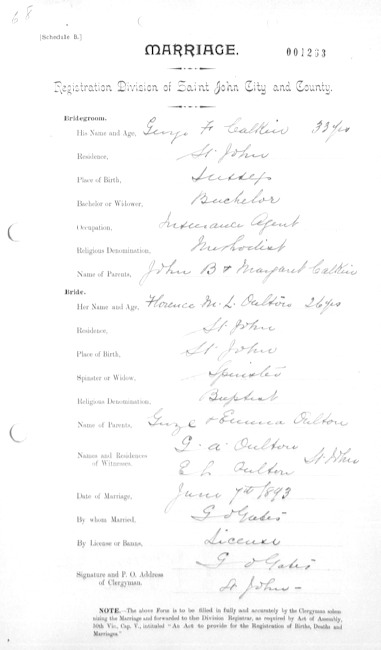 68
[Schedule B.]
MARRIAGE. 001263
Registration Division of Saint John City and County.
Bridegroom.
His Name and Age, George F Calkin 33 yrs
Residence, St John
Place of Birth, Sussex
Bachelor or Widower, Bachelor
Occupation, Insurance Agent
Religious Denomination, Methodist
Name of Parents, John B & Margaret Calkin
Bride.
Her Name and Age, Florence M. L. Oulton 26 yrs
Residence, St John
Place of Birth, St John
Spinster or Widow, Spinster
Religious Denomination, Baptist
Name of Parents, & Emma Oulton
Names and Residences of Witnesses. G. A Oulton
E L Oulton St John
Date of Marriage, June 7th 1893
By whom Married, G O Gates
By License or Banns, License
Signature and P. O. Address of Clergyman. G O Gates
St John -
NOTE.—The above Form is to be filled in fully and accurately by the Clergyman solemnizing the Marriage and forwarded to the Division Registrar, as required by Act of Assembly,
50th Vic., Cap. V., intituled "An Act to provide for the Registration of Births, Deaths and
Marriages."